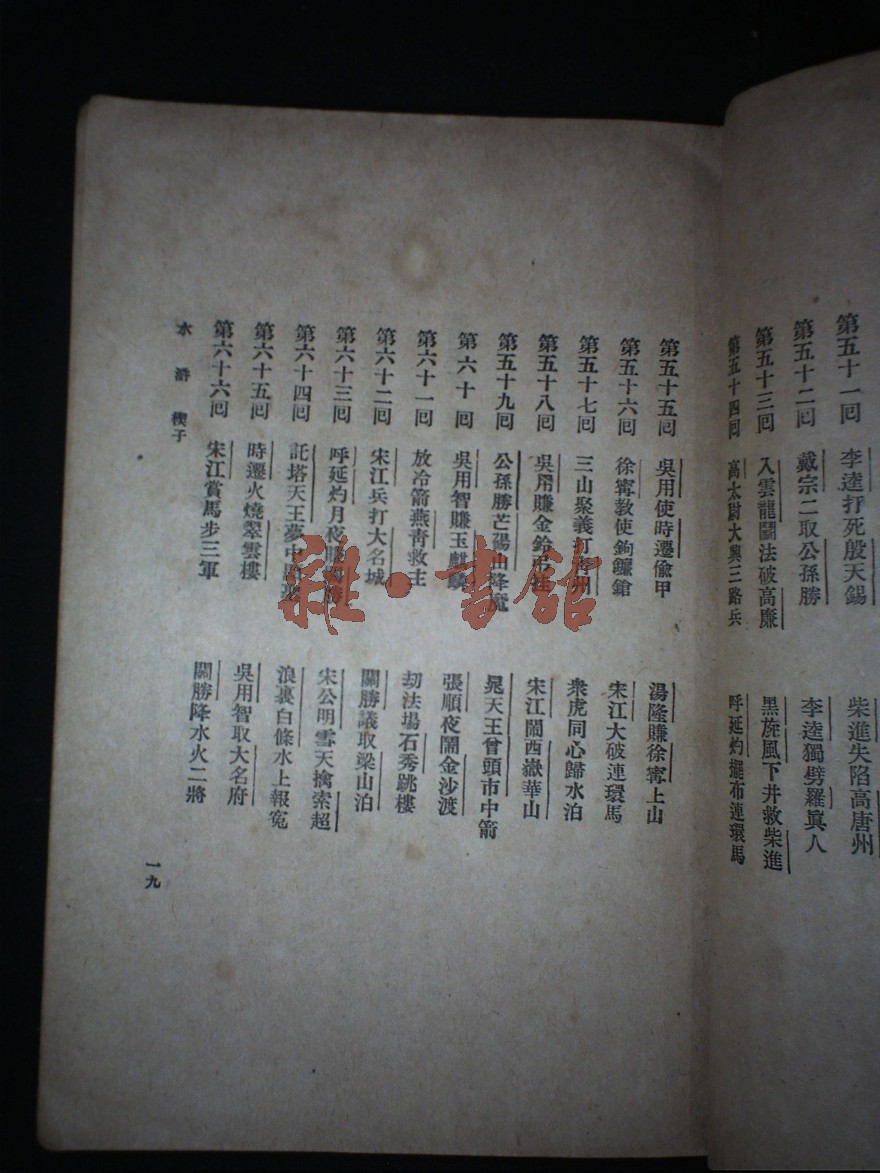 第五十一回 李逵打死殷天錫 柴進失陷高唐州
第五十二回 戴宗二取公孫勝 李逵獨劈羅眞人
第五十三回 入雲龍鬬法破高廉 黑旋風下井救柴進
第五十四回 高太尉大興三路兵 呼延灼擺布連環馬
第五十五回 吳用使時遷偷甲 湯隆賺徐寗上山
第五十六回 徐寗教使鉤鐮鎗 宋江大破連環馬
第五十七回 三山聚義打靑州 衆虎同心歸水泊
第五十八回 吳用賺金鈴吊挂 宋江鬧西嶽華山
第五十九回 公孫勝芒碭山降魔 晁天王曾頭市中箭
第六十回 吳用智賺玉麒麟 張順夜鬧金沙渡
第六十一回 放冷箭燕靑救主 劫法場石秀跳樓
第六十二回 宋江兵打大名城 關勝議取梁山泊
第六十三回 呼延灼月夜賺關勝 宋公明雪天擒索超
第六十四回 託塔天王夢中顯聖 浪裏白條水上報寃
第六十五回 時遷火燒翠雲樓 吳用智取大名府
第六十六回 宋江賞馬步三軍 關勝降水火二將
水滸 楔子
一九
雜·書館